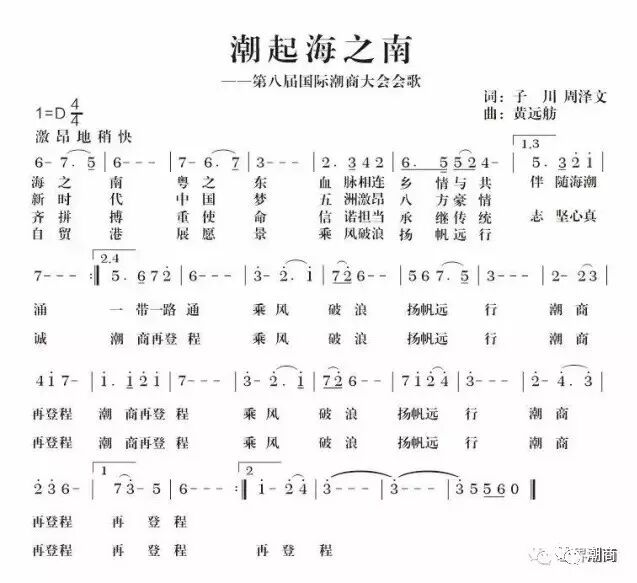 潮起海之南
——第八届国际潮商大会会歌
词：子 川 周泽文
曲：黄远舫
1=D 4/4
激昂地稍快
1,3
6- 7. 5 6--- 6- 7. 5 6--- 2. 3 4 2 6. 5 5 2 4--- 5. 3 2 1
海 之 南 粤 之 东 血 脉相连 乡 情与 共 伴 随海潮
新 时 代 中 国 梦 五 洲激昂 八 方豪 情
齐 拼 搏 重 使 命 信 诺担当 承 继传 统 志 坚心真
自 贸 港 展 愿 景 乘 风破浪 扬 帆远 行
2.4
7--- :‖ 5. 6 7 2 6--- 3- 2. 1 7 2 6-- 5 6 7. 5 3--- 2- 2 3
涌 一 带一路 通 乘 风 破 浪 扬帆远 行 潮 商
诚 潮 商再登 程 乘 风 破 浪 扬帆远 行 潮 商
4 1 7- 1. 1 2 1 7--- 3- 2. 1 7 2 6-- 7 1 2 4 3--- 2- 4. 3
再登程 潮 商再登 程 乘 风 破 浪 扬帆远 行 潮 商
再登程 潮 商再登 程 乘 风 破 浪 扬帆远 行 潮 商
1 2
2 3 6- 7 3- 5 6--- :‖ 1- 2 4 3--- 3--- 3 5 5 6 0
再登程 再 登 程
再登程 再 登 程 再 登 程
潮商